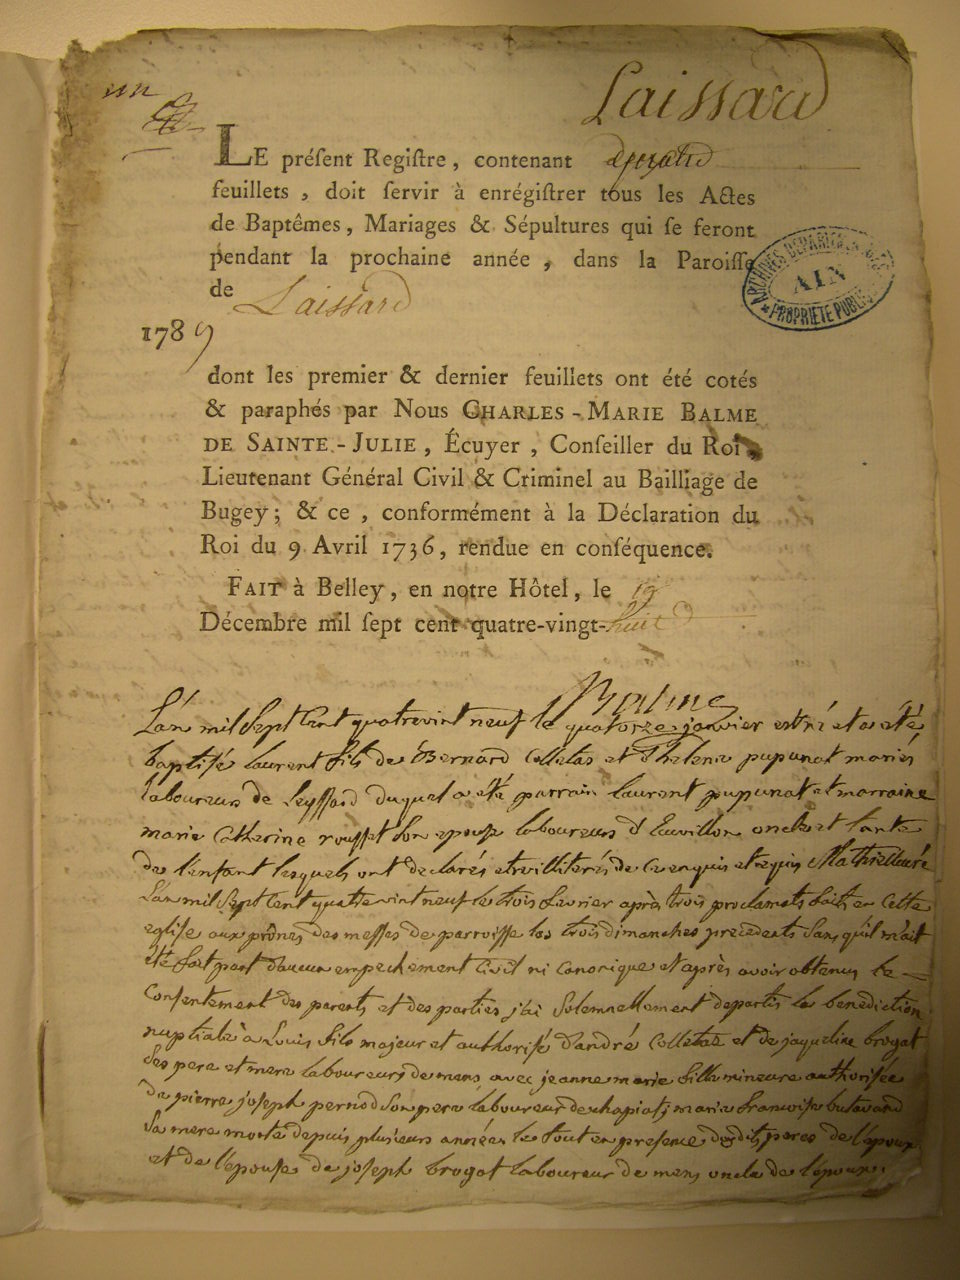 un
Laissard
LE préſent Regiſtre, contenant
feuillets, doit ſervir à enrégiſtrer tous les Actes
de Baptêmes, Mariages & Sépultures qui ſe feront
pendant la prochaine année, dans la Paroiſſe
ARCHIVES DEPARTEMENTALES AIN * PROPRIETE PUBLIQUE
de Laissard
1789
dont les premier & dernier feuillets ont été cotés
& paraphés par Nous CHARLES-MARIE BALME
DE SAINTE-JULIE, Écuyer, Conſeiller du Roi,
Lieutenant Général Civil & Criminel au Bailliage de
Bugey; & ce, conformément à la Déclaration du
Roi du 9 Avril 1736, rendue en conſéquence.
FAIT à Belley, en notre Hôtel, le
Décembre mil ſept cent quatre-vingt-huit
Balme
L'an mil sept cent quatrevint neuf le quatorze janvier est né et a été
baptisé laurent fils de Bernard Colletas et Thelene pupunat mariés
laboureurs de Leyssard duquel a été parrain laurent pupunat et marraine
marie Catherine rousset son epouse laboureurs d'Euvillon oncle et tante
de l'enfant lesquels ont declarés etre illiterés de ce enquis et requis
L'an mil sept cent quattrevint neuf le trois fevrier après trois proclamats faits en cette
eglise aux prônes des messes de parroisse les trois dimanches precedents sans qu'il m'ait
été fait part d'aucun empechement civil ni canonique et après avoir obtenus le
consentement des parents et des parties j'ai solemnellement departis la benediction
nuptiale à Louis fils majeur et authorisé d'andré Colletas et de jaqueline brogat
ses pere et mere laboureurs de mens avec jeanne marie fille mineure authorisée
de pierre joseph pernod son pere laboureur de chapiat; marie francoise butavand
sa mere morte depuis plusieurs années le tout en presence desdits peres de l'epoux
et de l'épouse de joseph brogat laboureur de mens oncle de l'époux.